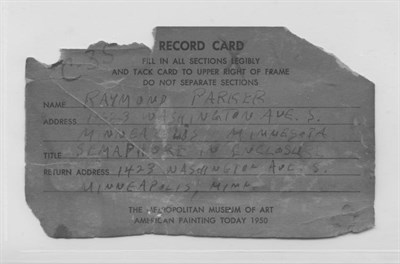 RECORD CARD
FILL IN ALL SECTIONS LEGIBLY
AND TACK CARD TO UPPER RIGHT OF FRAME
DO NOT SEPARATE SECTIONS
NAME RAYMOND PARKER
ADDRESS 1423 WASHINGTON AVE. S.
MINNEAPOLIS MINNESOTA
TITLE SEMAPHORE IN
RETURN ADDRESS 1423 WASHINGTON AVE. S.
MINNEAPOLIS, MINN
THE METROPOLITAN MUSEUM OF ART
AMERICAN PAINTING TODAY 1950